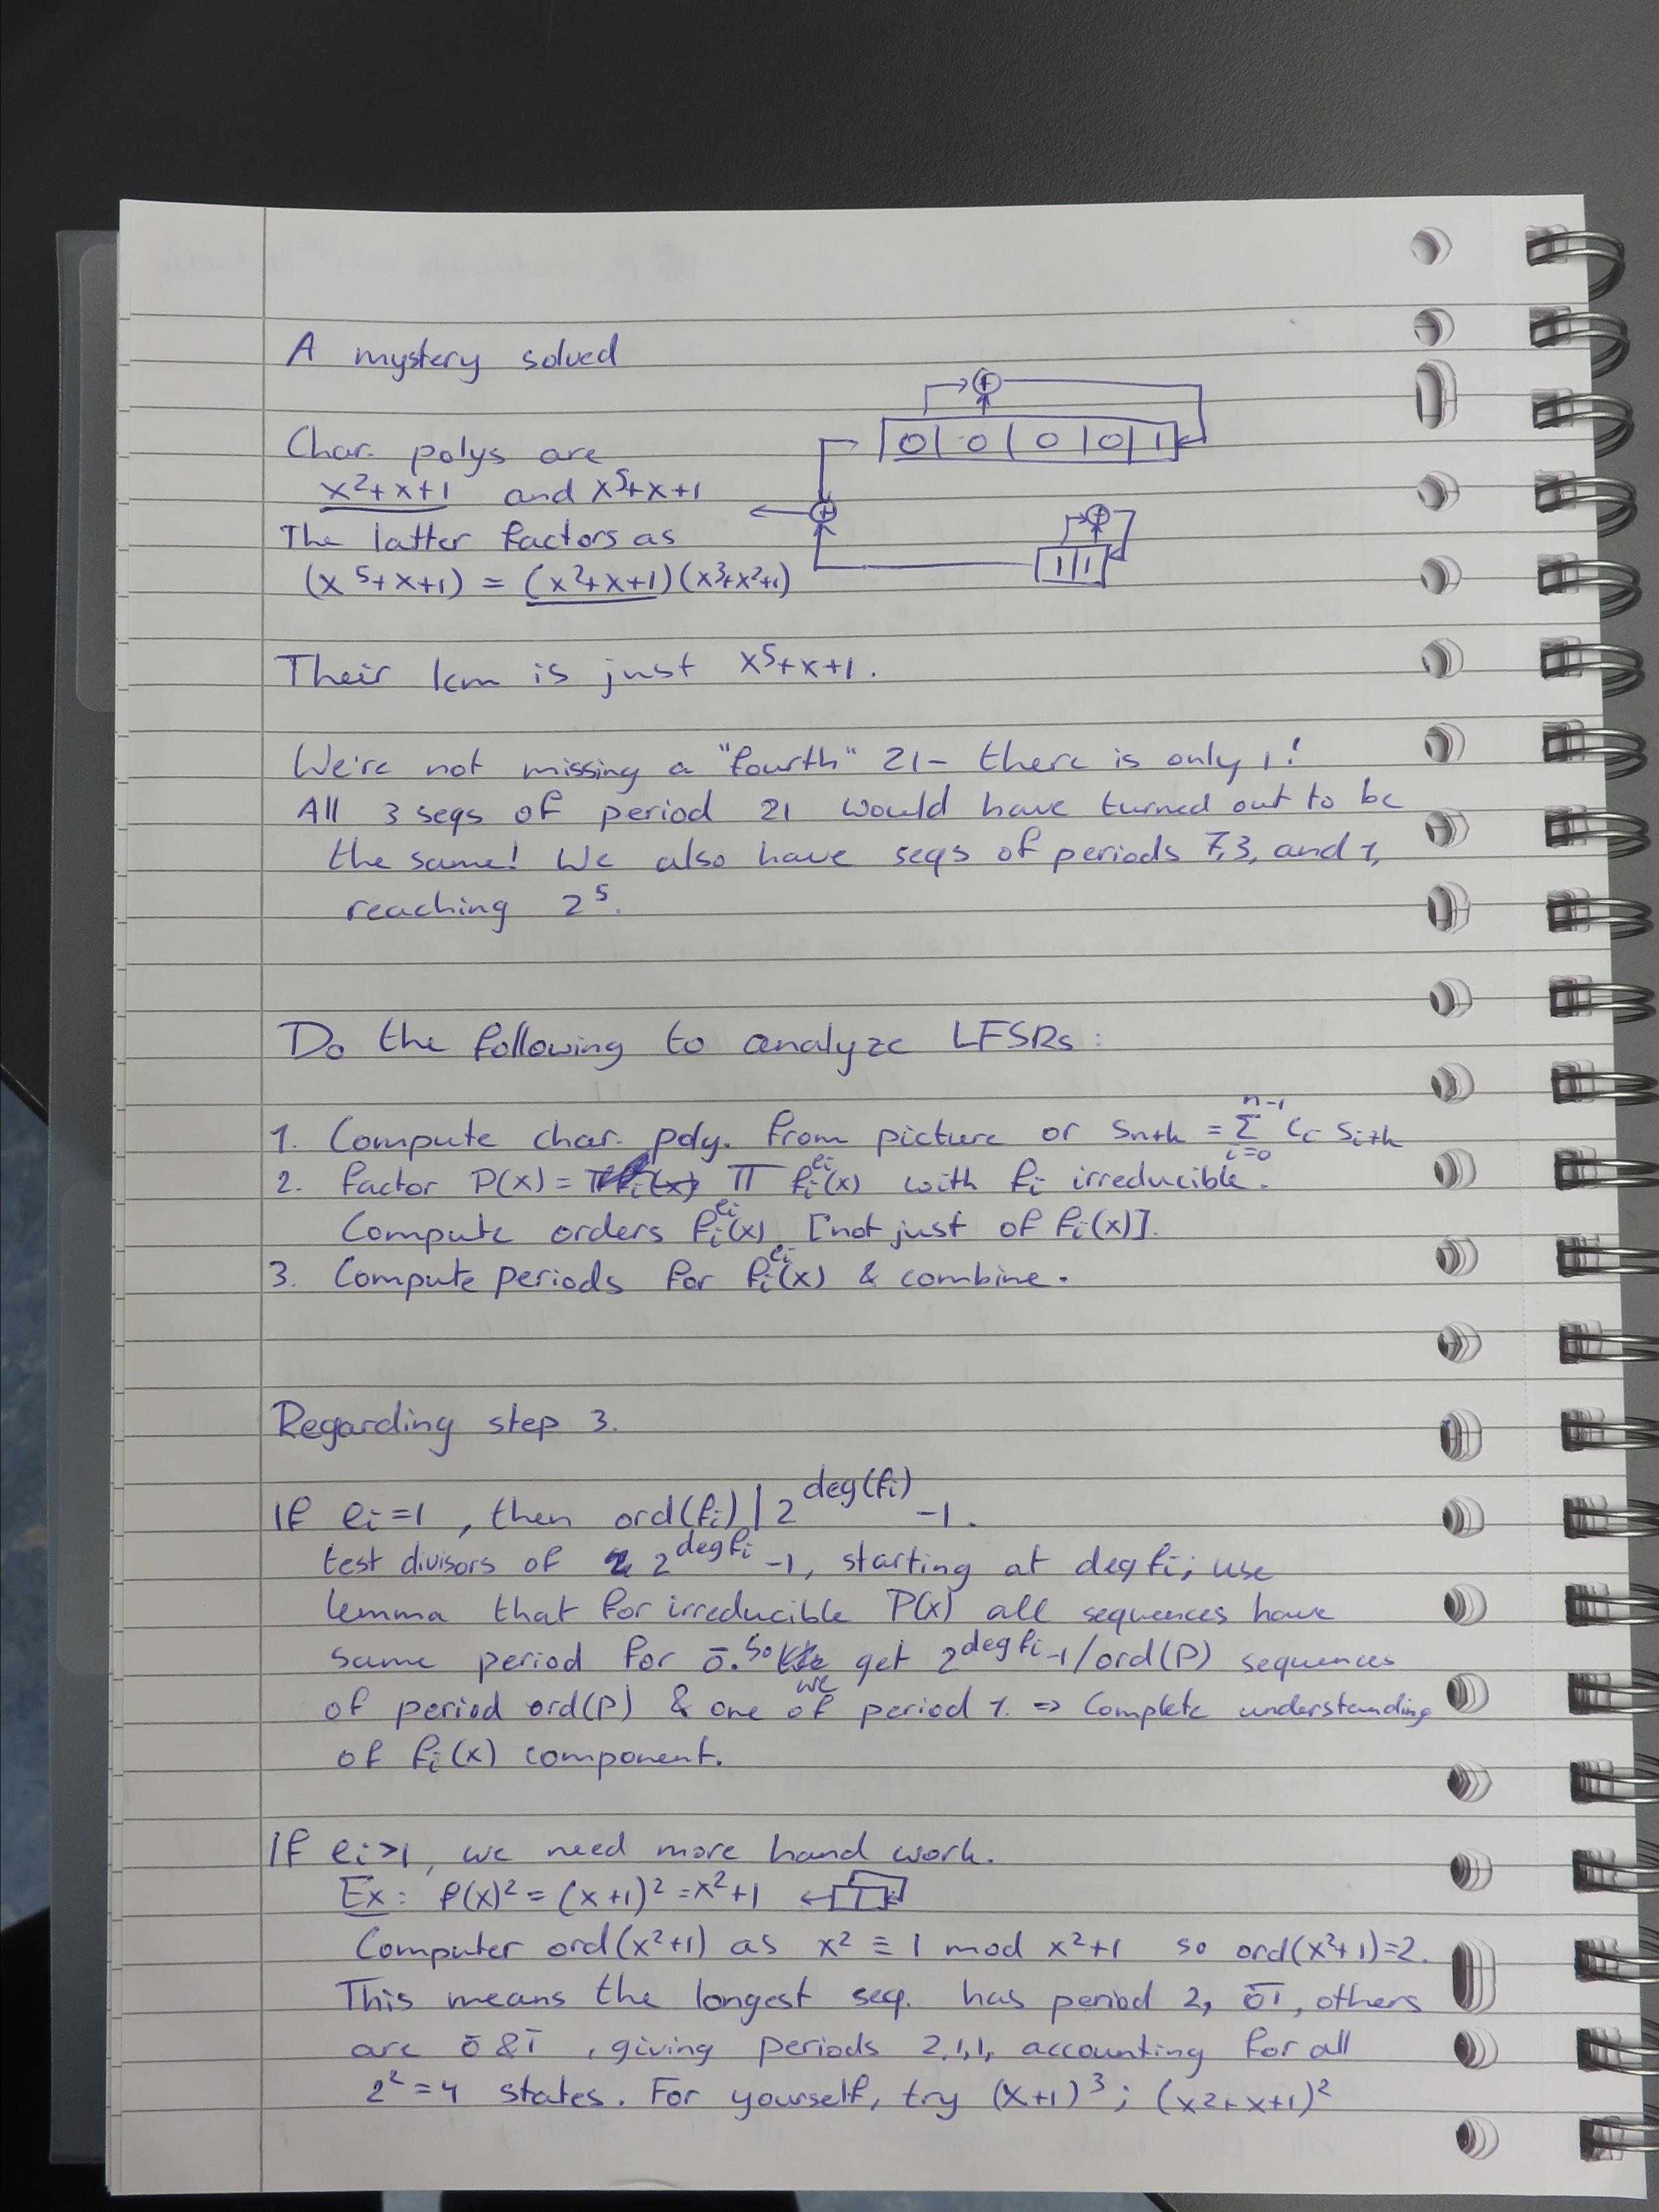 A mystery solved
Char. polys are
x²+x+1 and x⁵+x+1
The latter factors as
(x⁵+x+1) = (x²+x+1)(x³+x²+1)
0 | 0 | 0 | 0 | 1
1 | 1
Their lcm is just x⁵+x+1.
We're not missing a "fourth" 21 – there is only 1!
All 3 seqs of period 21 would have turned out to be
the same! We also have seqs of periods 7,3, and 1,
reaching 2⁵.
Do the following to analyze LFSRs:
1. Compute char. poly. from picture or Sₙ₊ₖ = Σᵢ₌₀ⁿ⁻¹ cᵢ Sᵢ₊ₖ
2. factor P(x) = Π fᵢ^eᵢ(x) with fᵢ irreducible.
Compute orders fᵢ^eᵢ(x) [not just of fᵢ(x)].
3. Compute periods for fᵢ^eᵢ(x) & combine.
Regarding step 3.
If eᵢ=1, then ord(fᵢ) | 2^deg(fᵢ) -1.
test divisors of 2^deg fᵢ -1, starting at deg fᵢ; use
lemma that for irreducible P(x) all sequences have
same period for 0̄. So we get 2^deg fᵢ -1/ord(P) sequences
of period ord(P) & one of period 1. ⇒ Complete understanding
of fᵢ(x) component.
If eᵢ>1, we need more hand work.
Ex: f(x)² = (x+1)² = x²+1
Computer ord(x²+1) as x² ≡ 1 mod x²+1 so ord(x²+1)=2.
This means the longest seq. has period 2, 0̄1̄, others
are 0̄ & 1̄, giving periods 2,1,1, accounting for all
2²=4 states. For yourself, try (x+1)³; (x²+x+1)²